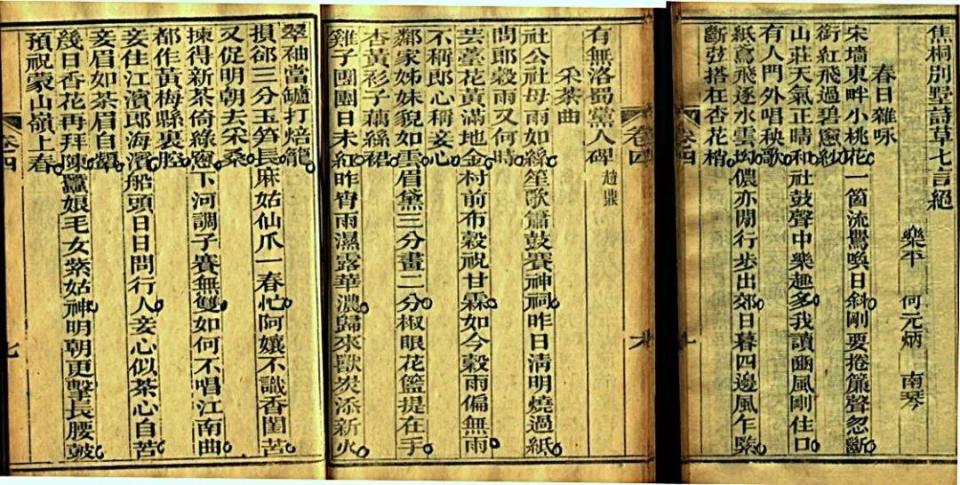 焦桐別墅詩草七言絕
樂平 何元炳 南琴
春日雜咏
宋墻東畔小桃花一箇流鶯喚日斜剛要捲簾聲忽斷
銜紅飛過碧窓紗
山莊天氣正晴和社鼓聲中樂趣多我讀豳風剛住口
有人門外唱秧歌
紙鳶飛逐水雲坳儂亦閒行步出郊日暮四邊風乍緊
斷弦搭在杏花梢
卷四
九
有無洛蜀黨人碑 趙鼎
采茶曲
社公社母雨如絲笙歌簫鼓賽神祠昨日清明燒過紙
問郎穀雨又何時
芸薹花黃滿地金村前布穀祝甘霖如今穀雨偏無雨
不稱郎心稱妾心
鄰家姊妹貌如雲眉黛三分畫二分椒眼花籃提在手
杏黃衫子藕絲裙
雉子團團日未紅昨宵雨濕露華濃歸來獸炭添新火
卷四
翠袖當罏打焙籠
損郤三分玉笋長麻姑仙爪一春忙阿孃不識香閨苦
又促明朝去采桑
揀得新茶倚綠窓下河調子賽無雙如何不唱江南曲
都作黃梅縣裏腔
妾住江濱郎海濱船頭日日問行人妾心似茶心自苦
妾眉如茶眉自顰
幾日香花再拜陳蠶娘毛女紫姑神明朝更擊長腰皷
預祝蒙山嶺上春
卷四
七